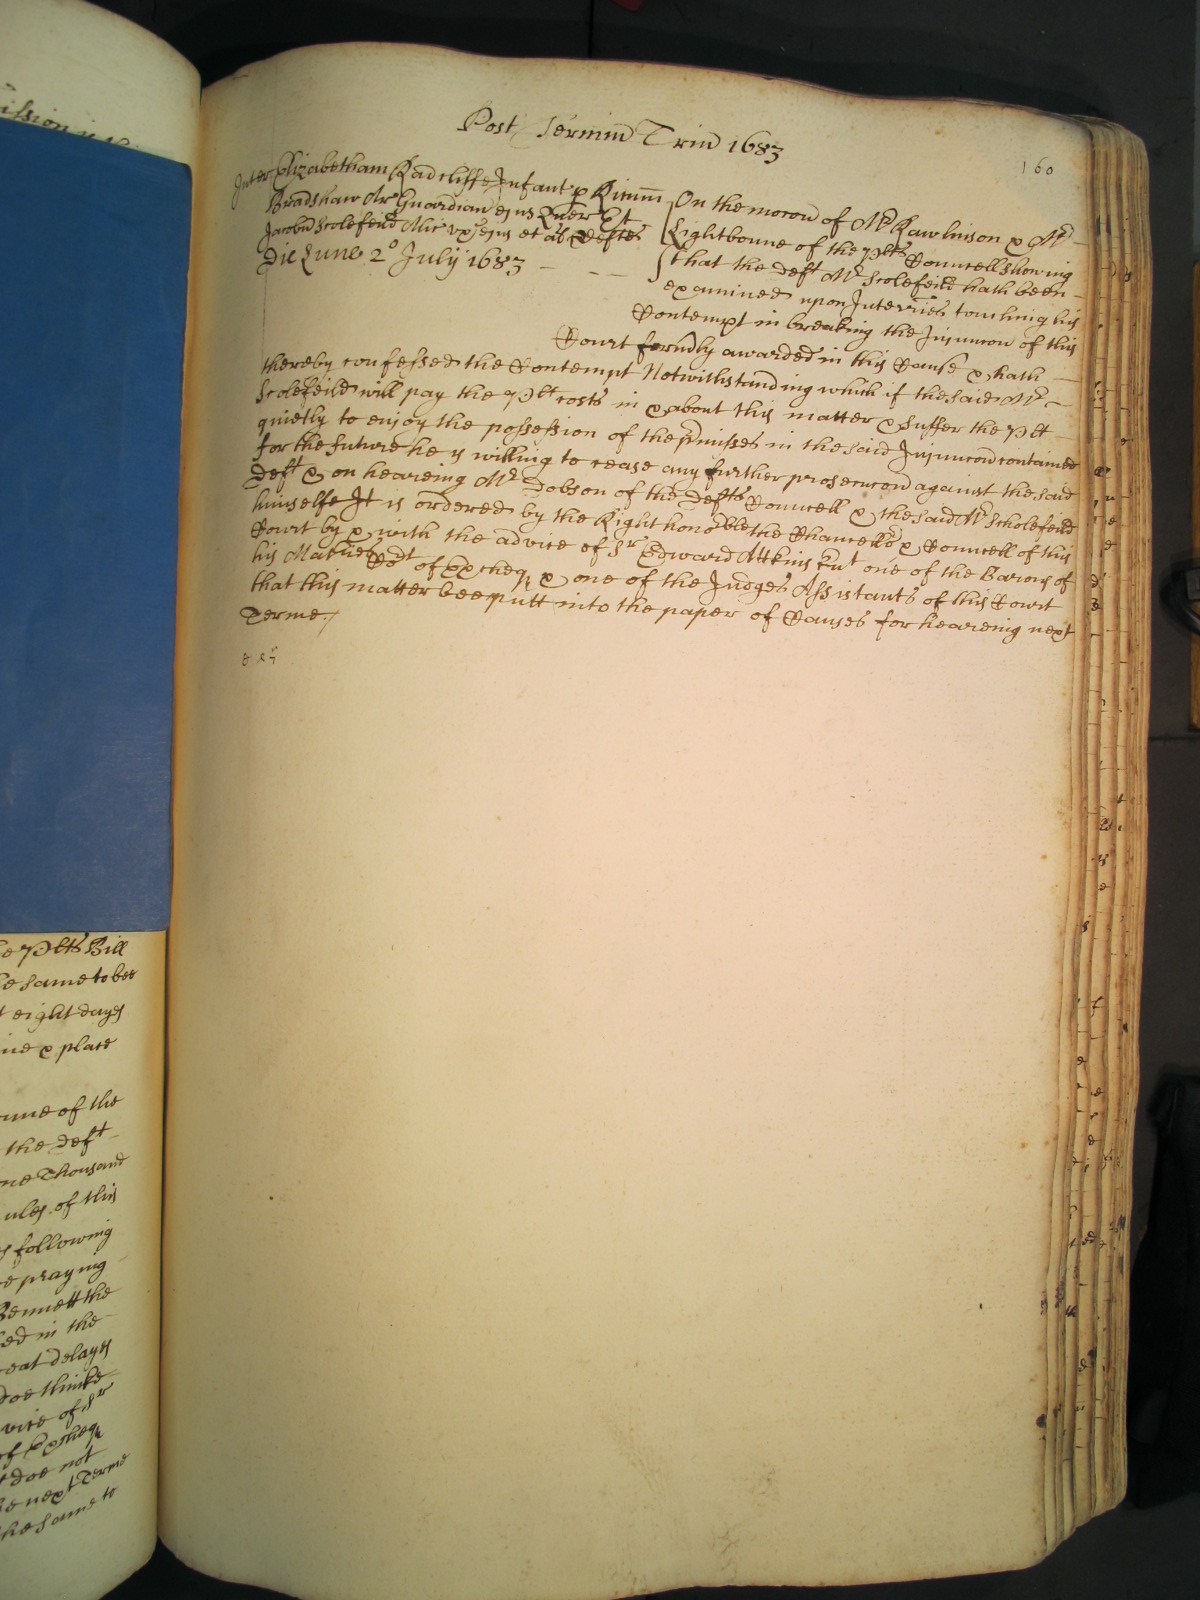 Post Terminū Trin 1683
160
Inter Elizabetham Radcliffe Infant p Ricum̄
Bradshaw Ar Guardian ejus Quer Et
Jacobū Scolefeild Mir vx ejus et al Defts
Die Lune 2° July 1683
On the mocon of Mr Rawlinson & Mr
Lightbourne of the Plts Councell showing
that the Deft Mr Scolefeild hath been
examined upon Interries touching his
Contempt in breaking the Injuncon of this
Court formly awarded in this Cause & hath
thereby confessed the Contempt Notwithstanding which if the said Mr
Scolefeild will pay the Plt costs in & about this matter & suffer the Plt
quietly to enjoy the possession of the p̄misses in the said Injuncon contained
for the future he is willing to cease any further prosecucon against the said
Deft & on heareing Mr Dobson of the Defts Councell & the said Mr Scholefeild
himselfe It is ordered by the Right honoble the Chancellor & Councell of this
Court by & with the advice of Sr Edward Attkins Knt one of the Barons of
his Maties Cort of Excheqr & one of the Judges Assistants of this Court
that this matter bee putt into the paper of Causes for heareing next
Terme./
Plts Bill
same to bee
eight days
& place
of the
the Deft
Thousand
of this
following
praying
Bennett the
in the
delays
doe thinke
of Sr
of Excheqr
doe not
next Terme
the same to